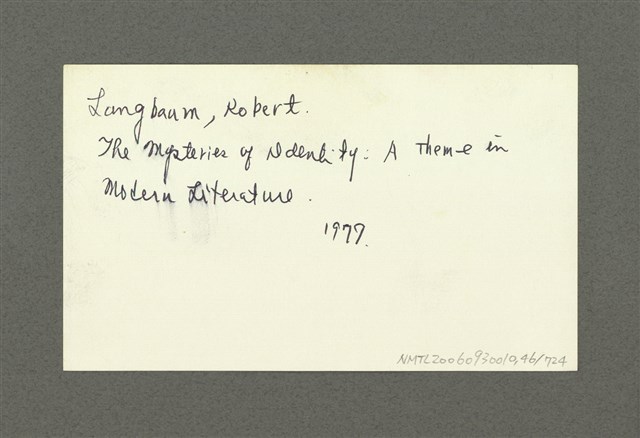 Langbaum, Robert.
The Mysteries of Identity: A Theme in
Modern Literature.
1977.
NMTL20060930010,46/724